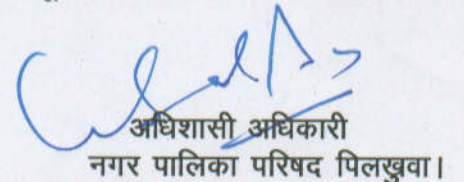 अधिशासी अधिकारी
नगर पालिका परिषद पिलखुवा।